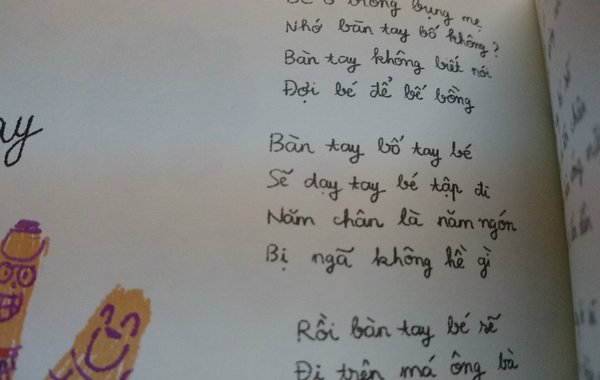 Bé ở trong bụng mẹ
Nhớ bàn tay bố không?
Bàn tay không biết nói
Đợi bé để bế bồng
Bàn tay bố tay bé
Sẽ dạy tay bé tập đi
Năm chân là năm ngón
Bị ngã không hề gì
Rồi bàn tay bé sẽ
Đi trên má ông bà
ay